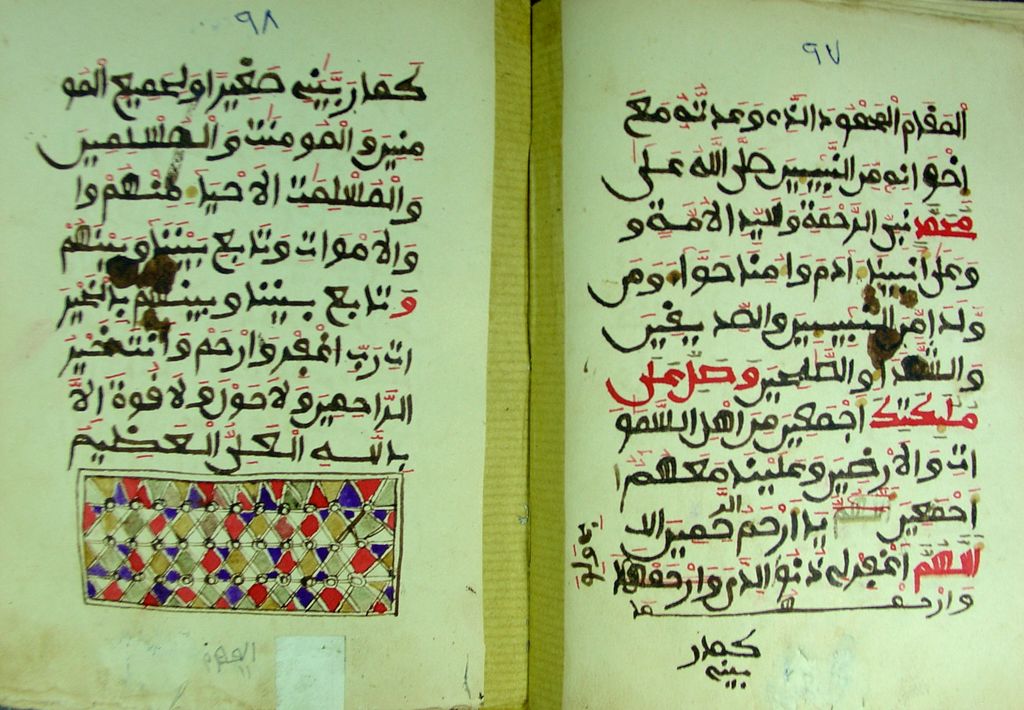 ٩٧
المقام المحمود الذي وعدته مع
اخوانه من النبيين صلى الله على
محمد نبي الرحمة وسيد الامة و
وعلى ابينا ادم وامنا حواء ومن
ولدا من النبيين والصديقين
والشهداء والصلحين وصل على
مليكتك اجمعين من اهل السمو
ات والارضين وعلينا معهم
اجمعين يا ارحم الرحمين
اللهم اغفر لي ذنوبي ولوالدي وارحمهما
كما ر
بيني
٩٨
كما ربيني صغيرا ولجميع المو
منين والمومنت والمسلمين
والمسلمت الاحياء منهم وا
والاموات وتابع بيننا وبينهم
وتابع بيننا وبينهم بالخير
ات رب اغفر وارحم وانت خير
الراحمين ولا حول ولا قوة الا
بالله العلي العظيم